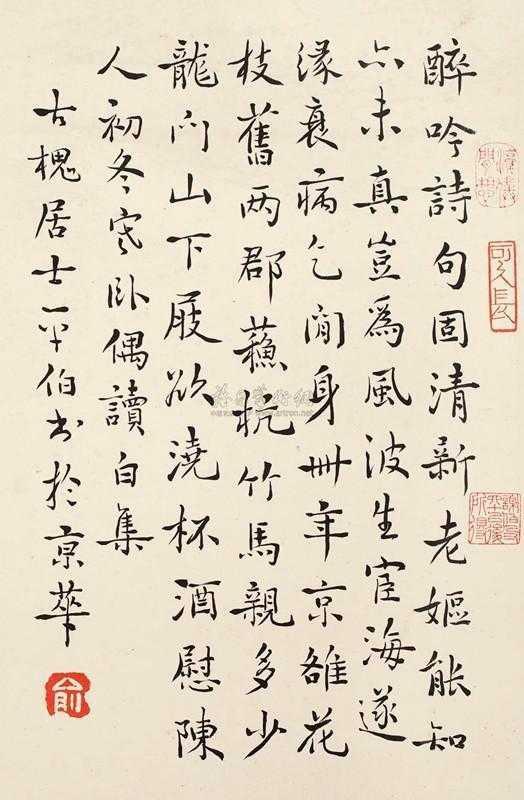 醉吟詩句固清新老嫗能知
亦未真豈爲風波生宦海遂
緣衰病乞閒身卅年京雒花
枝舊两郡蘓杭竹馬親多少
龍门山下屐欲澆杯酒慰陳
人初冬寒卧偶讀白集
古槐居士平伯书於京華
俞